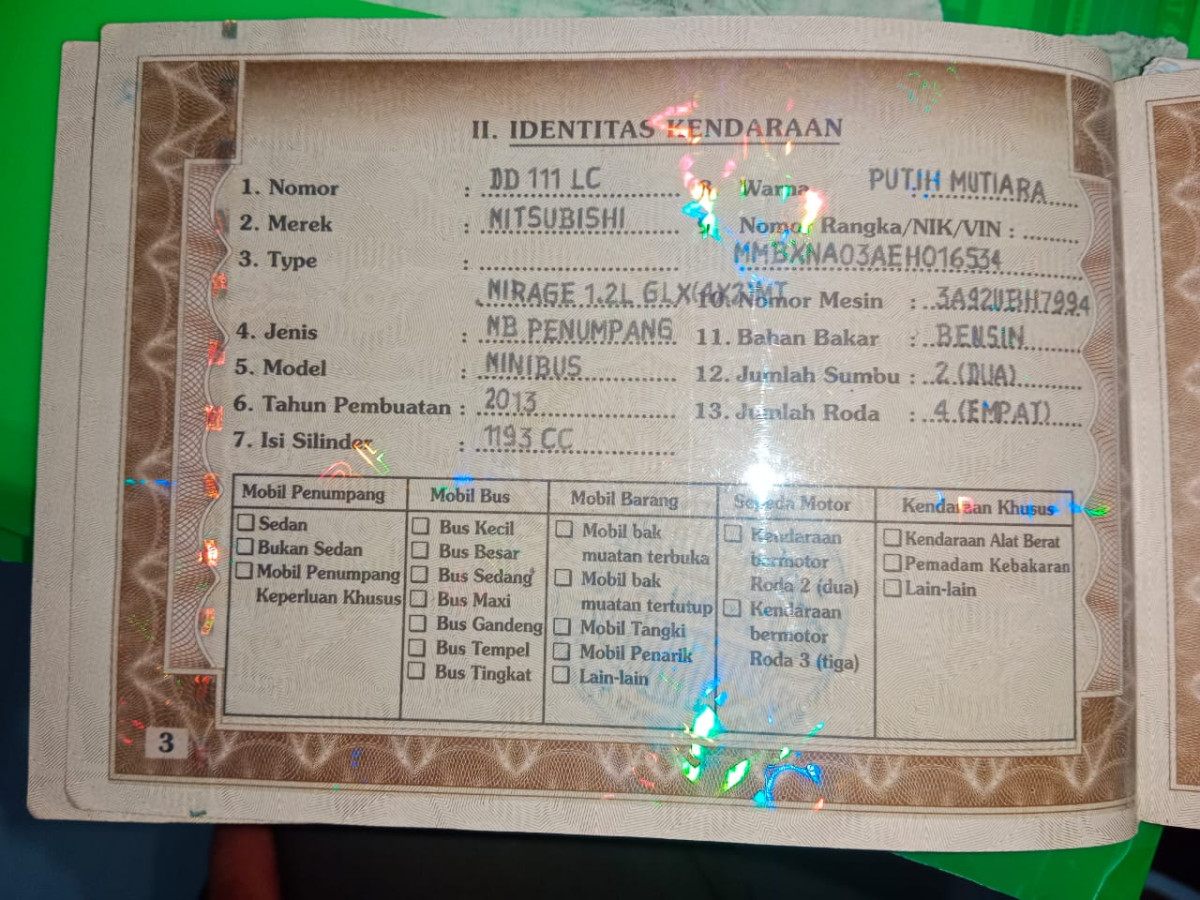 II. IDENTITAS KENDARAAN
1. Nomor : DD 111 LC
2. Merek : MITSUBISHI
3. Type :
MIRAGE 1.2L GLX(4X2)MT
4. Jenis : MB PENUMPANG
5. Model : MINIBUS
6. Tahun Pembuatan : 2013
7. Isi Silinder : 1193 CC
8. Warna PUTIH MUTIARA
9. Nomor Rangka/NIK/VIN :
MMBXNA03AEH016534
10. Nomor Mesin : 3A92UBH7994
11. Bahan Bakar : BENSIN
12. Jumlah Sumbu : 2 (DUA)
13. Jumlah Roda : 4 (EMPAT)
Mobil Penumpang
Sedan
Bukan Sedan
Mobil Penumpang
Keperluan Khusus
Mobil Bus
Bus Kecil
Bus Besar
Bus Sedang
Bus Maxi
Bus Gandeng
Bus Tempel
Bus Tingkat
Mobil Barang
Mobil bak
muatan terbuka
Mobil bak
muatan tertutup
Mobil Tangki
Mobil Penarik
Lain-lain
Sepeda Motor
Kendaraan
bermotor
Roda 2 (dua)
Kendaraan
bermotor
Roda 3 (tiga)
Kendaraan Khusus
Kendaraan Alat Berat
Pemadam Kebakaran
Lain-lain
3